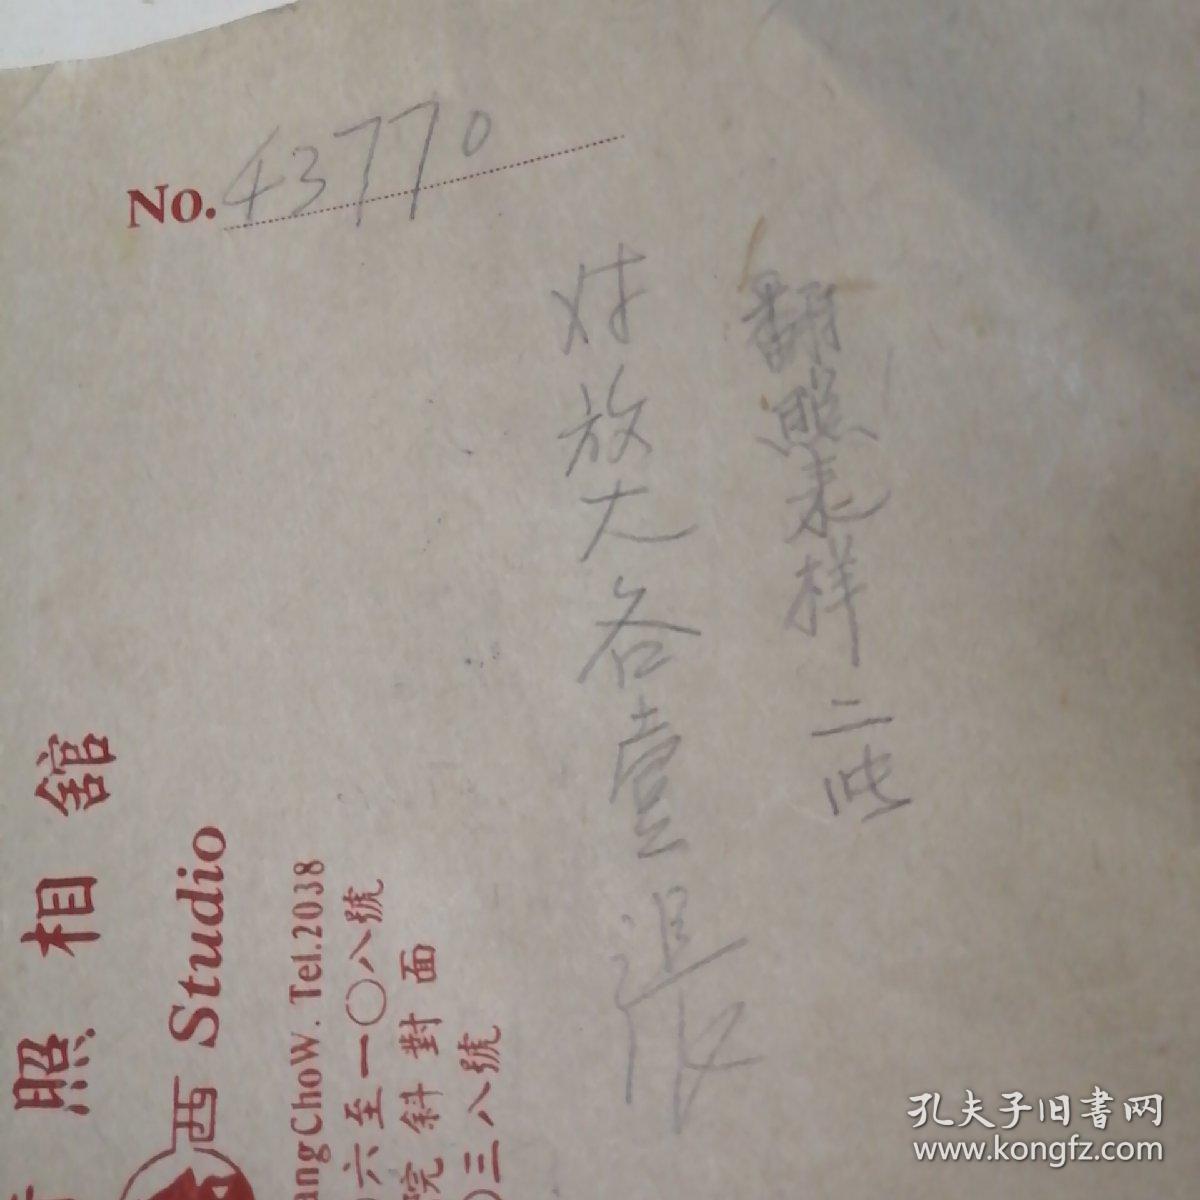 No. 43770
翻照表样二
对放大各壹
照相舘
西 Studio
angChoW. Tel.2038
六至一〇八號
院斜對面
三八號
孔夫子旧書网
www.kongfz.com